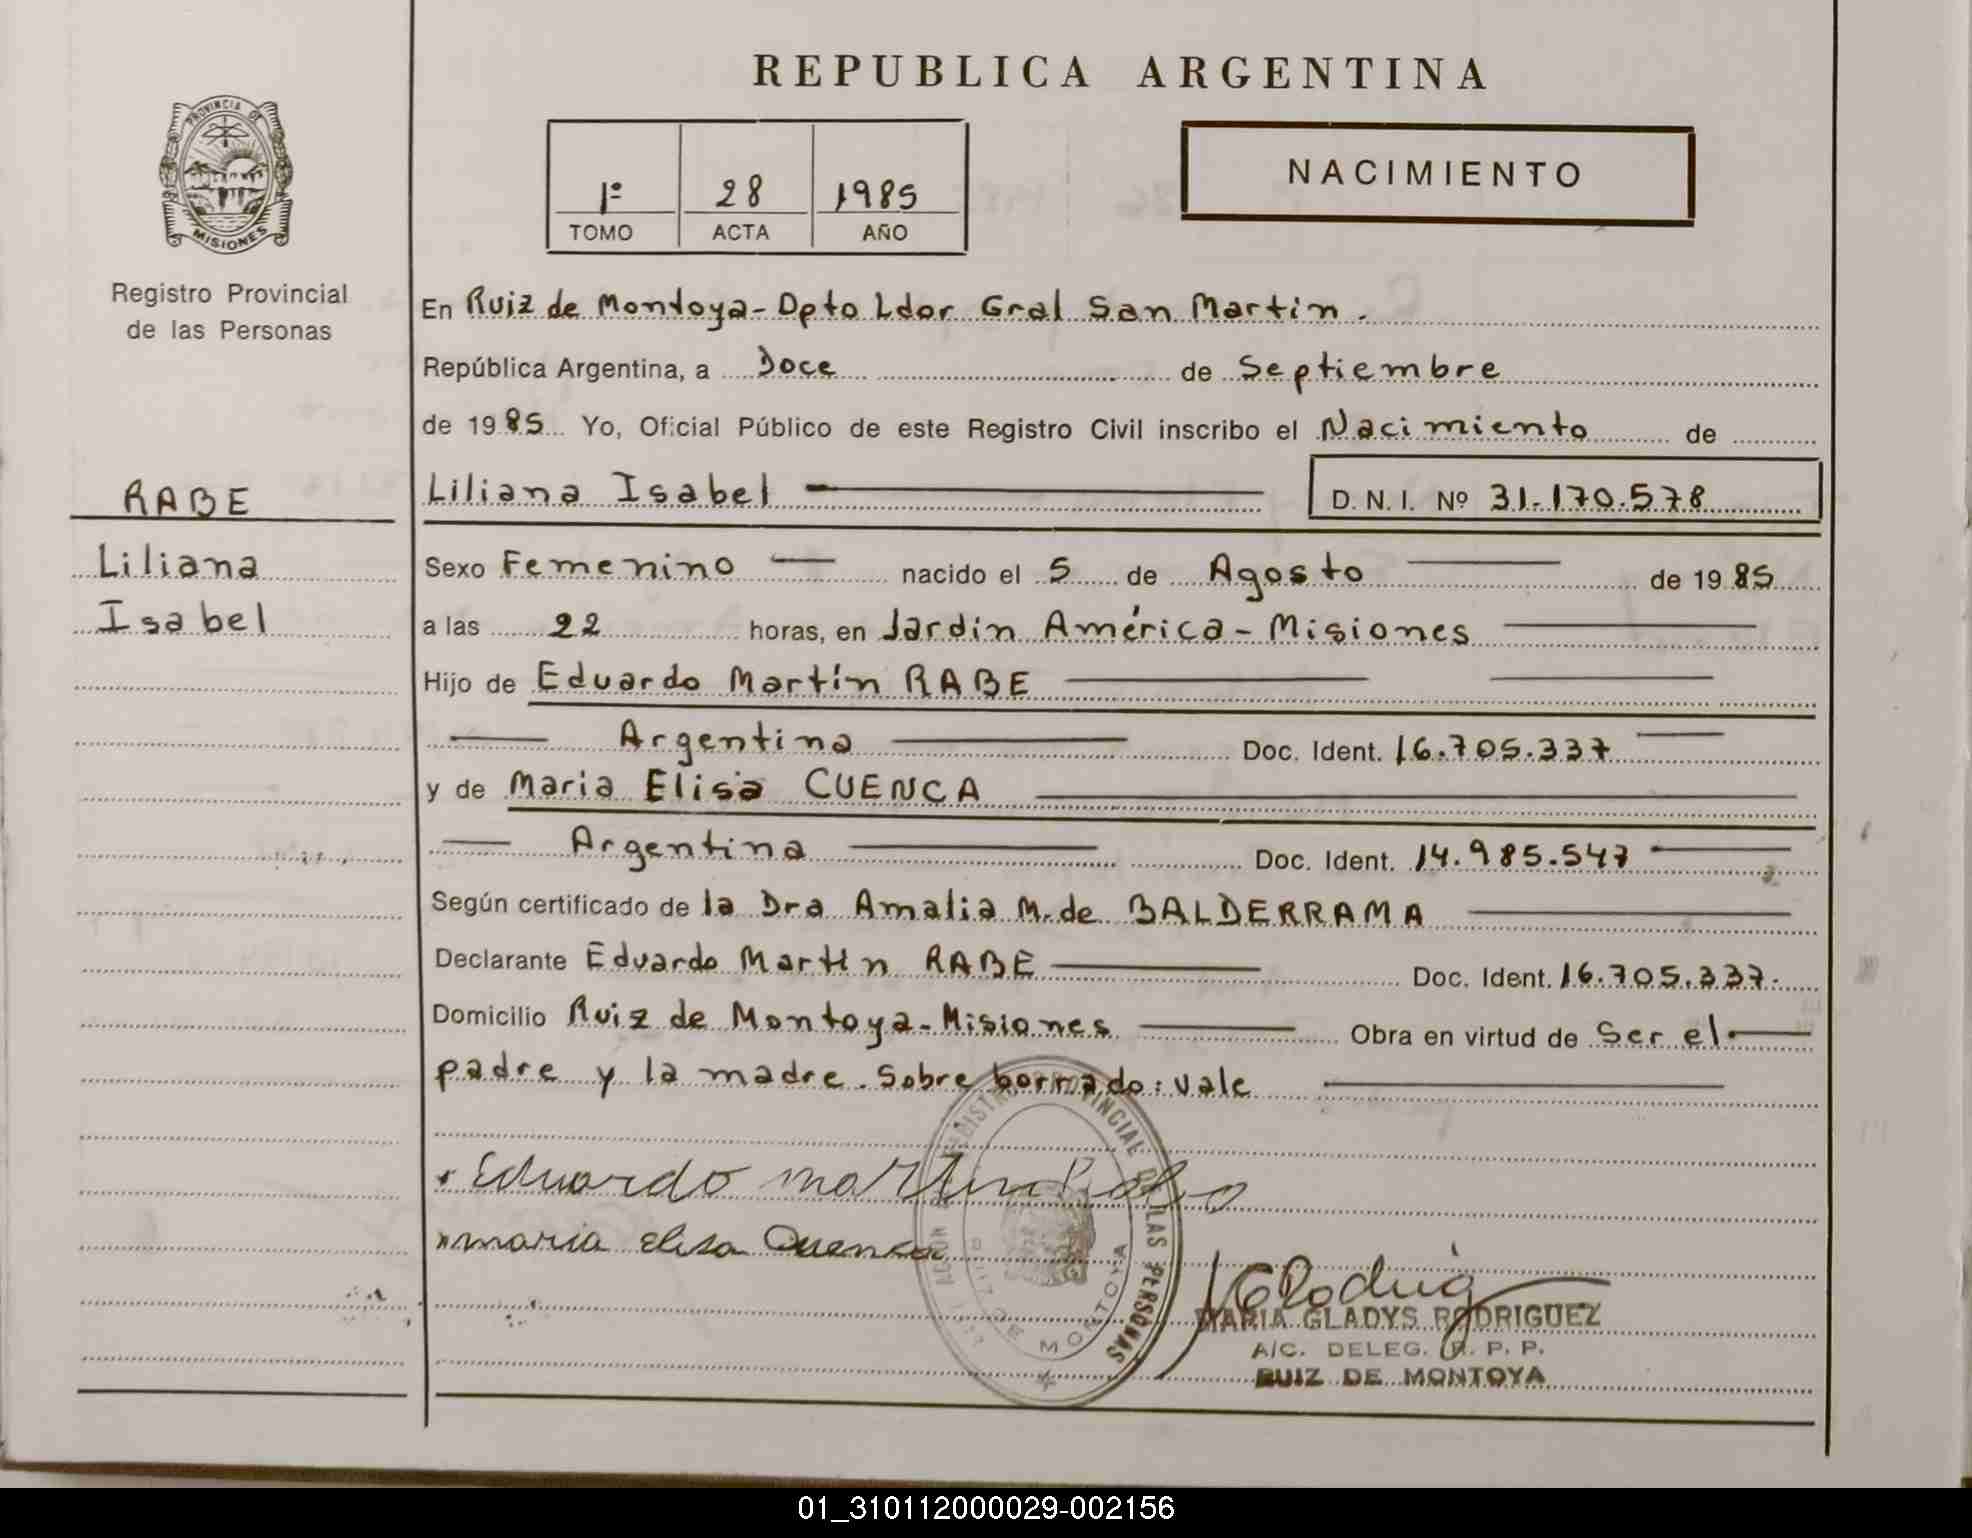 REPUBLICA ARGENTINA
PROVINCIA DE
MISIONES
Registro Provincial
de las Personas
1º 28 1985
TOMO ACTA AÑO
NACIMIENTO
En Ruiz de Montoya - Dpto Ldor Gral San Martín.
República Argentina, a Doce de Septiembre
de 1985 Yo, Oficial Público de este Registro Civil inscribo el Nacimiento de
RABE
Liliana Isabel D. N. I. Nº 31.170.578
Liliana
Sexo Femenino nacido el 5 de Agosto de 1985
Isabel
a las 22 horas, en Jardín América - Misiones
Hijo de Eduardo Martín RABE
Argentina Doc. Ident. 16.705.337
y de Maria Elisa CUENCA
Argentina Doc. Ident. 14.985.547
Según certificado de la Dra Amalia M. de BALDERRAMA
Declarante Eduardo Martín RABE Doc. Ident. 16.705.337.
Domicilio Ruiz de Montoya - Misiones Obra en virtud de Ser el
padre y la madre. Sobre borrado: vale
Eduardo martin
maria elisa Cuenca
REGISTRO PROVINCIAL DE LAS PERSONAS
RUIZ DE MONTOYA
MARIA GLADYS RODRIGUEZ
A/C. DELEG. R. P. P.
RUIZ DE MONTOYA
01_310112000029-002156